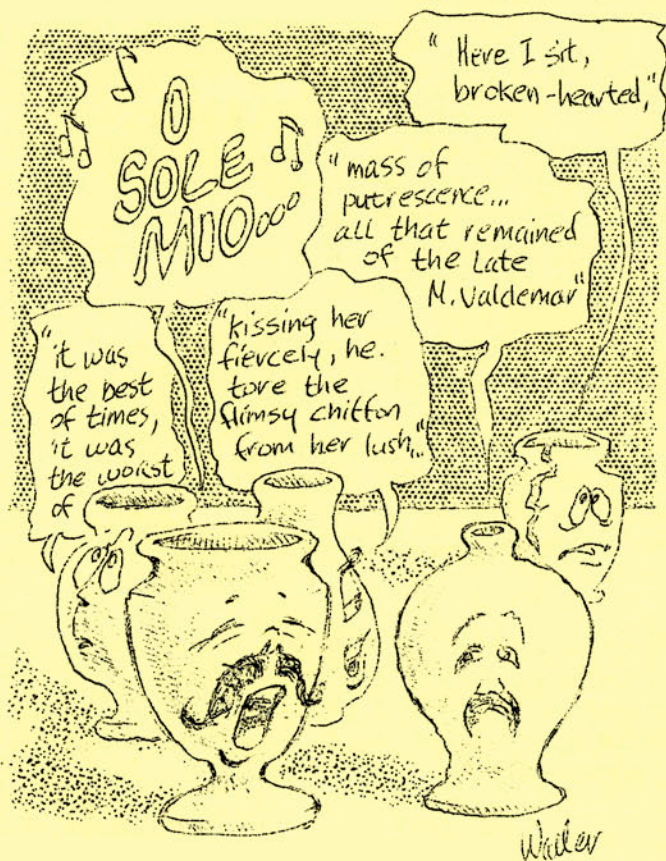 O
SOLE
MIO...
"Here I sit,
broken-hearted,"
"mass of
putrescence...
all that remained
of the late
M. Valdemar"
"it was
the best
of times,
it was
the worst
of
"kissing her
fiercely, he
tore the
flimsy chiffon
from her lush..."